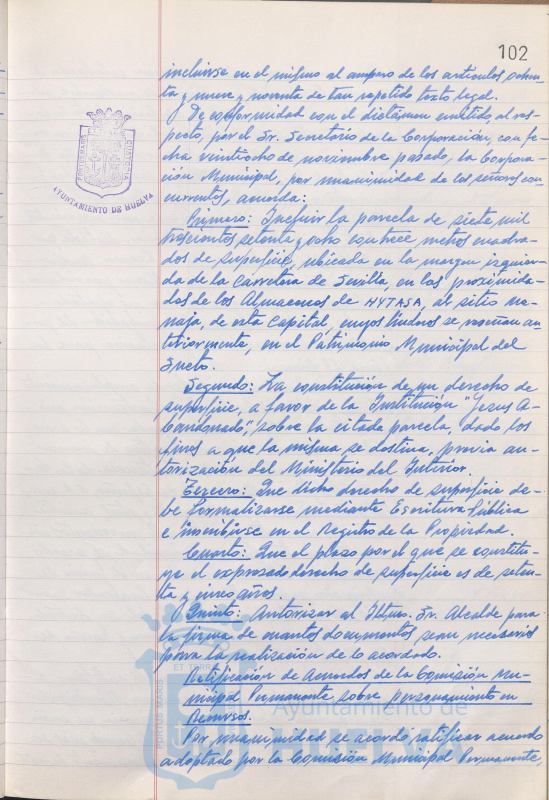 102
incluirse en el mismo al amparo de los artículos ochen-
ta y nueve y noventa de tan repetido texto legal.
De conformidad con el dictámen emitido, al res-
pecto, por el Sr. Secretario de la Corporación, con fe-
cha veintiocho de noviembre pasado, la Corpora-
ción Municipal, por unanimidad de los señores con-
currentes, acuerda:
Primero: Incluir la parcela de siete mil
trescientos setenta y ocho con trece metros cuadra-
dos de superficie, ubicada en la margen izquier-
da de la Carretera de Sevilla, en las proximida-
des de los Almacenes de HYTASA, al sitio
de esta Capital, cuyos linderos se reseñan an-
teriormente, en el Patrimonio Municipal del
Suelo.
Segundo: La constitución de un derecho de
superficie, a favor de la Institución "Jesus A-
bandonado", sobre la citada parcela, dado los
fines a que la misma se destina, previa au-
torización del Ministerio del Interior.
Tercero: Que dicho derecho de superficie de-
be formalizarse mediante Escritura Pública
e inscribirse en el Registro de la Propiedad.
Cuarto: Que el plazo por el que se constitu-
ye el expresado derecho de superficie es de seten-
ta y cinco años.
Quinto: Autorizar al Iltmo. Sr. Alcalde para
la firma de cuantos documentos sean necesarios
para la realización de lo acordado.
Ratificación de Acuerdos de la Comisión Mu-
nicipal Permanente sobre personamiento en
Recursos.
Por unanimidad se acordó ratificar acuerdo
adoptado por la Comisión Municipal Permanente,
AYUNTAMIENTO DE HUELVA
PORTUS MARIS
ET TERRAE
Ayuntamiento de
HUELVA